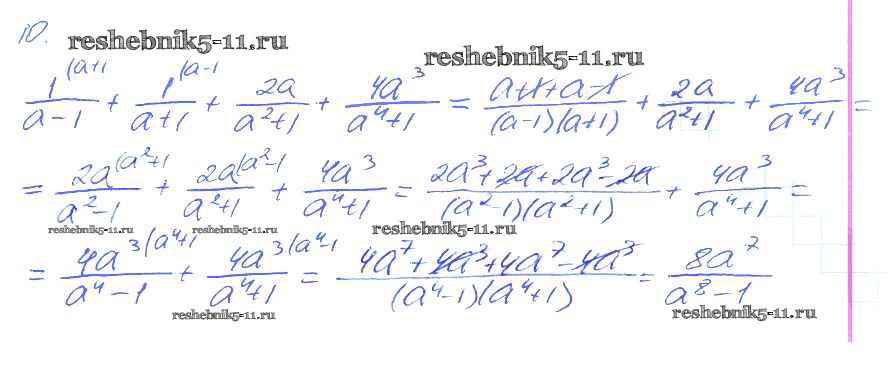 10.
reshebnik5-11.ru
reshebnik5-11.ru
1^(a+1 / a-1 + 1^(a-1 / a+1 + 2a / a²+1 + 4a³ / a⁴+1 = a+1+a-1 / (a-1)(a+1) + 2a / a²+1 + 4a³ / a⁴+1 =
= 2a^(a²+1 / a²-1 + 2a^(a²-1 / a²+1 + 4a³ / a⁴+1 = 2a³+2a+2a³-2a / (a²-1)(a²+1) + 4a³ / a⁴+1 =
reshebnik5-11.ru reshebnik5-11.ru reshebnik5-11.ru
= 4a³^(a⁴+1 / a⁴-1 + 4a³^(a⁴-1 / a⁴+1 = 4a⁷+4a³+4a⁷-4a³ / (a⁴-1)(a⁴+1) = 8a⁷ / a⁸-1
reshebnik5-11.ru reshebnik5-11.ru